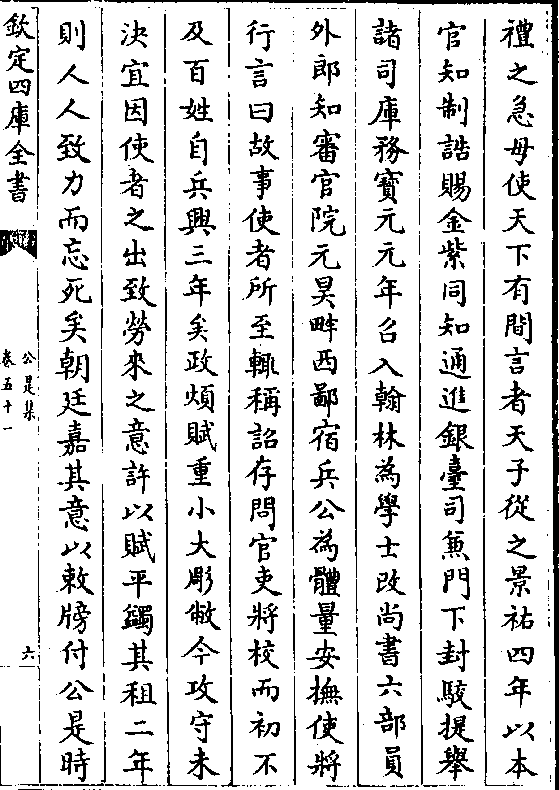 禮之急毋使天下有間言者天子從之景祐四年以本
官知制誥賜金紫同知通進銀臺司兼門下封駁提舉
諸司庫務寳元元年召入翰林為學士改尚書六部員
外郎知審官院元昊畔西鄙宿兵公為體量安撫使將
行言曰故事使者所至輒稱詔存問官吏將校而初不
及百姓自兵興三年矣政煩賦重小大彫敝今攻守未
決宜因使者之出致勞來之意許以賊平蠲其租二年
則人人致力而忘死矣朝廷嘉其意以敕牓付公是時
欽定四庫全書
公是集
卷五十一
六